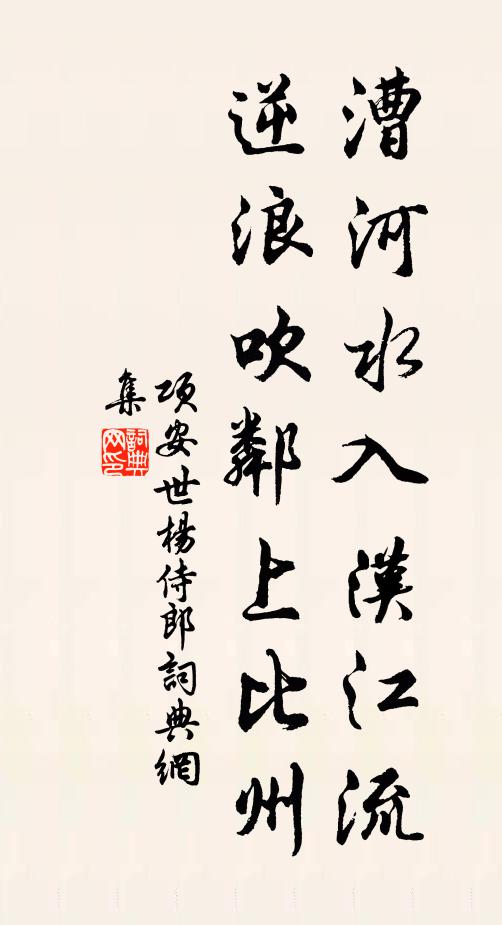 漕河水入漢江流
逆浪吹鄰上比州
項安世楊侍郎詞典網
集
詞典網印